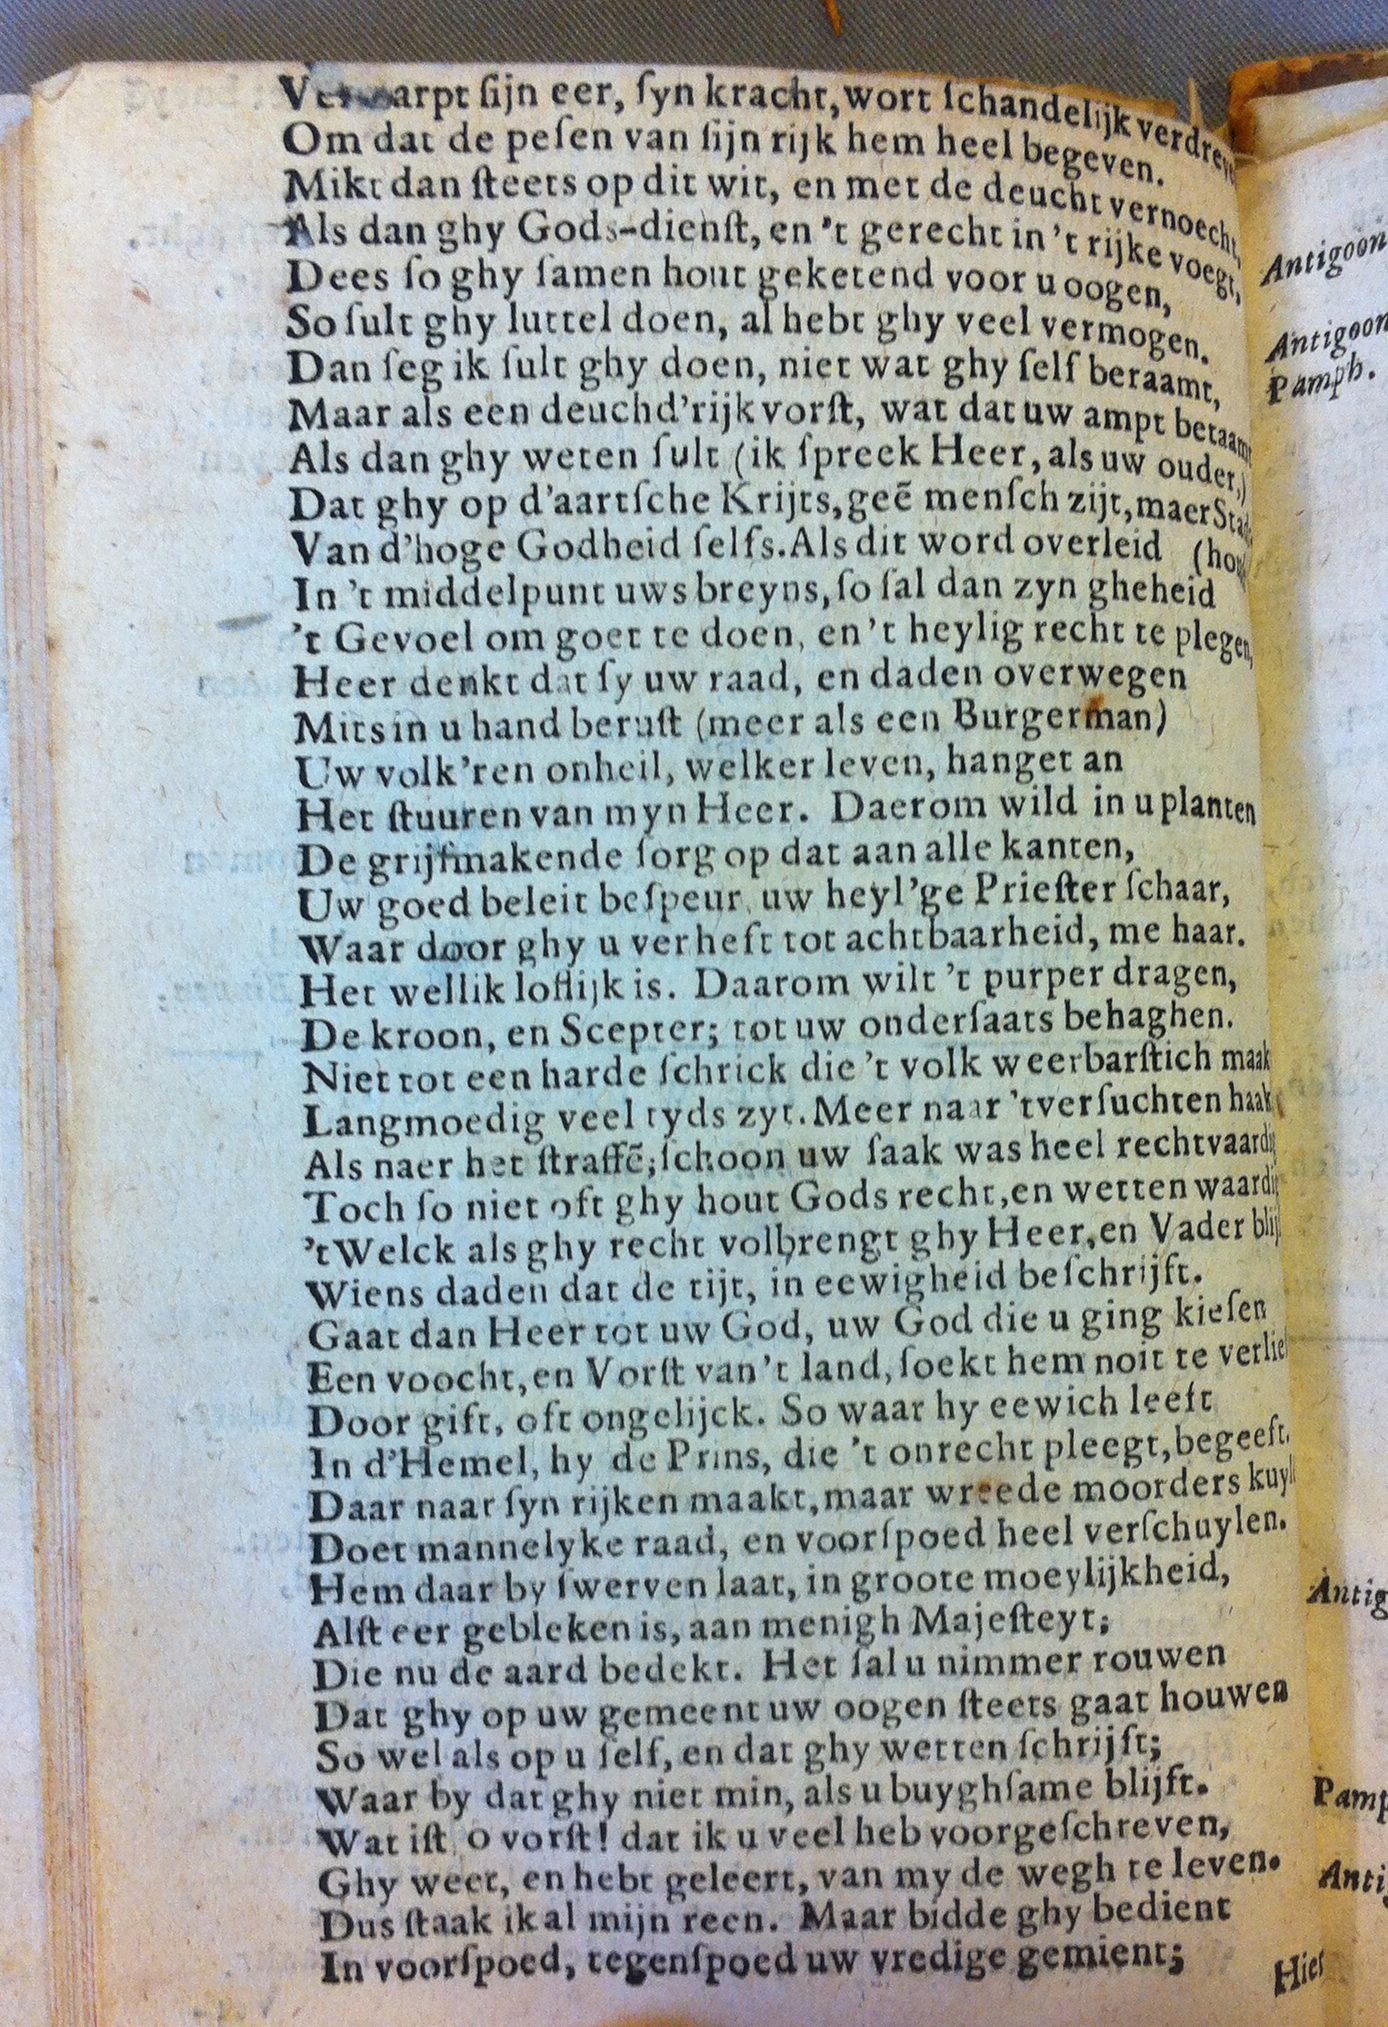 Verwarpt ſijn eer, ſyn kracht, wort ſchandelijk verdreve
Om dat de peſen van ſijn rijk hem heel begeven.
Mikt dan ſteets op dit wit, en met de deucht vernoecht,
Als dan ghy Gods-dienſt, en 't gerecht in 't rijke voegt,
Dees ſo ghy ſamen hout geketend voor u oogen,
So ſult ghy luttel doen, al hebt ghy veel vermogen.
Dan ſeg ik ſult ghy doen, niet wat ghy ſelf beraamt,
Maar als een deuchd'rijk vorſt, wat dat uw ampt betaamt
Als dan ghy weten ſult (ik ſpreek Heer, als uw ouder,)
Dat ghy op d'aartſche Krijts, geẽ menſch zijt, maer Stad
Van d'hoge Godheid ſelfs. Als dit word overleid (hou
In 't middelpunt uws breyns, ſo ſal dan zyn gheheid
't Gevoel om goet te doen, en 't heylig recht te plegen,
Heer denkt dat ſy uw raad, en daden overwegen
Mits in u hand beruſt (meer als een Burgerman)
Uw volk'ren onheil, welker leven, hanget an
Het ſtuuren van myn Heer. Daerom wild in u planten
De grijſmakende ſorg op dat aan alle kanten,
Uw goed beleit beſpeur, uw heyl'ge Prieſter ſchaar,
Waar door ghy u verheft tot achtbaarheid, me haar.
Het wellik loflijk is. Daarom wilt 't purper dragen,
De kroon, en Scepter; tot uw onderſaats behaghen.
Niet tot een harde ſchrick die 't volk weerbarſtich maak
Langmoedig veel tyds zyt. Meer naar 't verſuchten haak
Als naer het ſtraffẽ; ſchoon uw ſaak was heel rechtvaardi
Toch ſo niet oft ghy hout Gods recht, en wetten waardi
't Welck als ghy recht volbrengt ghy Heer, en Vader blij
Wiens daden dat de tijt, in eewigheid beſchrijft.
Gaat dan Heer tot uw God, uw God die u ging kieſen
Een voocht, en Vorſt van 't land, ſoekt hem noit te verlie
Door gift, oft ongelijck. So waar hy eewich leeft
In d'Hemel, hy de Prins, die 't onrecht pleegt, begeeft.
Daar naar ſyn rijken maakt, maar wreede moorders kuyl
Doet mannelyke raad, en voorſpoed heel verſchuylen.
Hem daar by ſwerven laat, in groote moeylijkheid,
Alſt eer gebleken is, aan menigh Majeſteyt;
Die nu de aard bedekt. Het ſal u nimmer rouwen
Dat ghy op uw gemeent uw oogen ſteets gaat houwen
So wel als op u ſelf, en dat ghy wetten ſchrijft;
Waar by dat ghy niet min, als u buyghſame blijft.
Wat iſt, o vorſt! dat ik u veel heb voorgeſchreven,
Ghy weet, en hebt geleert, van my de wegh te leven.
Dus ſtaak ik al mijn reen. Maar bidde ghy bedient
In voorſpoed, tegenſpoed uw vredige gemient;
Antigoon
Antigoon
Pamph.
Antig
Pamp
Antig
Hief